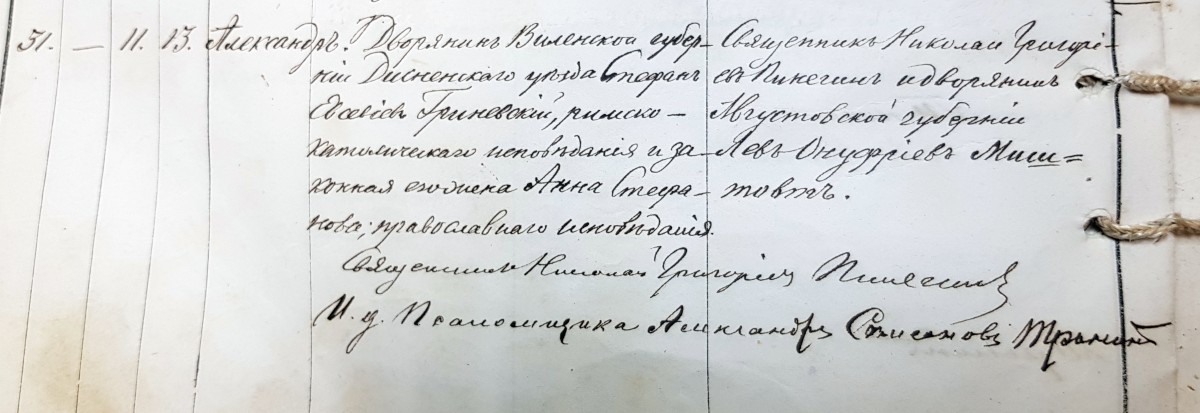 31. — 11. 13. Александръ. Дворянинъ Виленской губер-
ніи Дисненскаго уѣзда Стефанъ
Евсевіевъ Гриневскій, римско-
католическаго исповѣданія и за-
конная его жена Анна Стефа-
нова, православнаго исповѣданія.
Священникъ Николай Григорі-
евъ Пинегинъ и дворянинъ
Августовской губерніи
Левъ Онуфріевъ Миш=
товтъ.
Священникъ Николай Григоріевъ Пинегинъ
И. д. Псаломщика Александръ